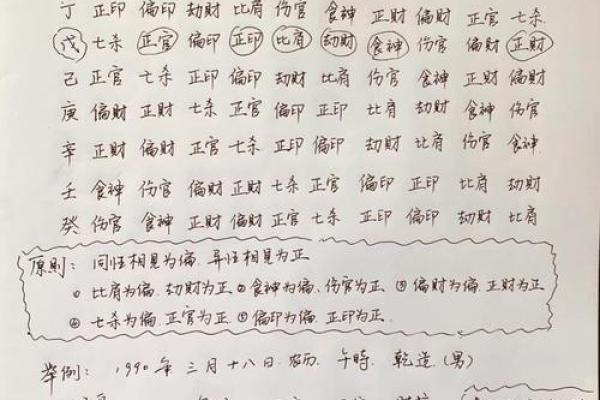 丁 正印 偏印 劫财 比肩 伤官 食神 正财 偏财 正官 七杀
戊 七杀 正官 偏印 正印 比肩 劫财 食神 伤官 偏财 正财
己 正官 七杀 正印 偏印 劫财 比肩 伤官 食神 正财 偏财
庚 偏财 正财 七杀 正官 偏印 正印 比肩 劫财 食神 伤官
辛 正财 偏财 正官 七杀 正印 偏印 劫财 比肩 伤官 食神
壬 食神 伤官 偏财 正财 七杀 正官 偏印 正印 比肩 劫财
癸 伤官 食神 正财 偏财 正官 七杀 正印 偏印 劫财 比肩
原则: 同性相见为偏. 异性相见为正
① 比肩为偏. 劫财为正 ② 食神为偏、伤官为正 ③ 偏财为偏. 正财为正
④ 七杀为偏. 正官为正 ⑤ 偏印为偏. 正印为正.
举例: 1990年 三月十八日. 农历. 午時. 乾造. (男)